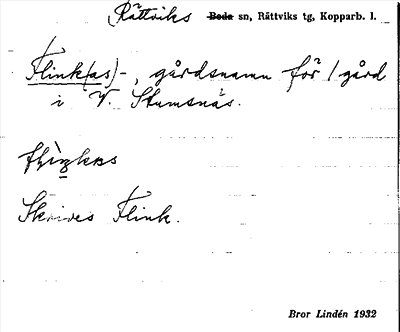 Rättviks Boda sn, Rättviks tg, Kopparb. l.
Flink(as)-, gårdsnamn för 1 gård
i V. Stumsnäs.
Skrives Flink.
Bror Lindén 1932